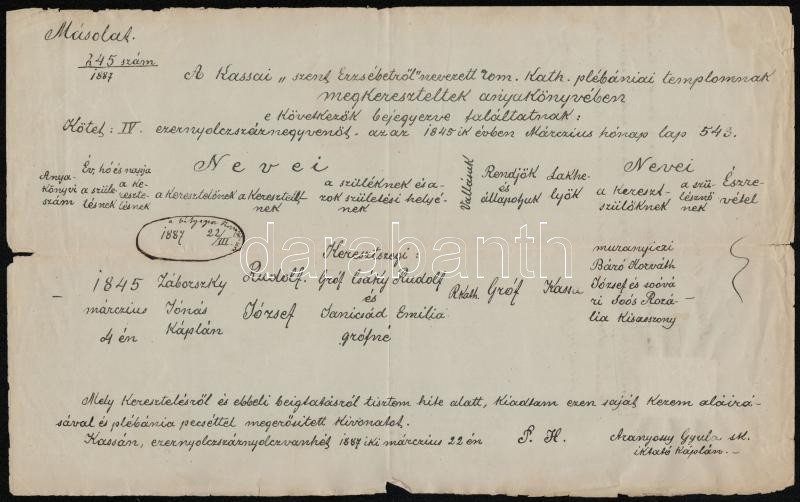 Másolat.
245 szám
1887
A Kassai „szent Erzsébetről" nevezett rom. Kath. plébániai templomnak
megkereszteltek anyakönyvében
e következők bejegyezve találtatnak:
Kötet: IV. ezernyolczszáznegyvenöt. azaz 1845 ik évben Márczius hónap lap 543.
Anya-
könyvi
szám
Év, hó és napja
a szüle-
tésnek
a ke-
reszte-
lésnek
Nevei
a keresztelőnek
a keresztelt-
nek
a szülőknek és a-
zok születési helyé-
nek
Vallásuk
Rendjök
és
állapotjuk
Lakhe-
lyök
Nevei
a kereszt-
szülőknek
a szü-
lésznő
nek
Észre-
vétel
a bélyegen
1887 22/III.
1845
márczius
4 én
Záborszky
Jónás
Káplán
Rudolf.
József
Keresztszegi:
Gróf Csáky Rudolf
és
Janicsád Emilia
grófné
R.Kath.
Gróf
Kassa
muranyiczi
Báró Horváth
József és soóvá
ri Soós Rozá-
lia Kisasszony
Mely keresztelésről és ebbeli beigtatásról tisztem hite alatt, kiadtam ezen saját kezem aláirá-
sával és plébánia pecséttel megerősitett Kivonatot.
Kassán, ezernyolczszáznyolczvanhét 1887 iki márczius 22 én
P. H.
Aranyossy Gyula sk.
iktató Káplán.
darabanth